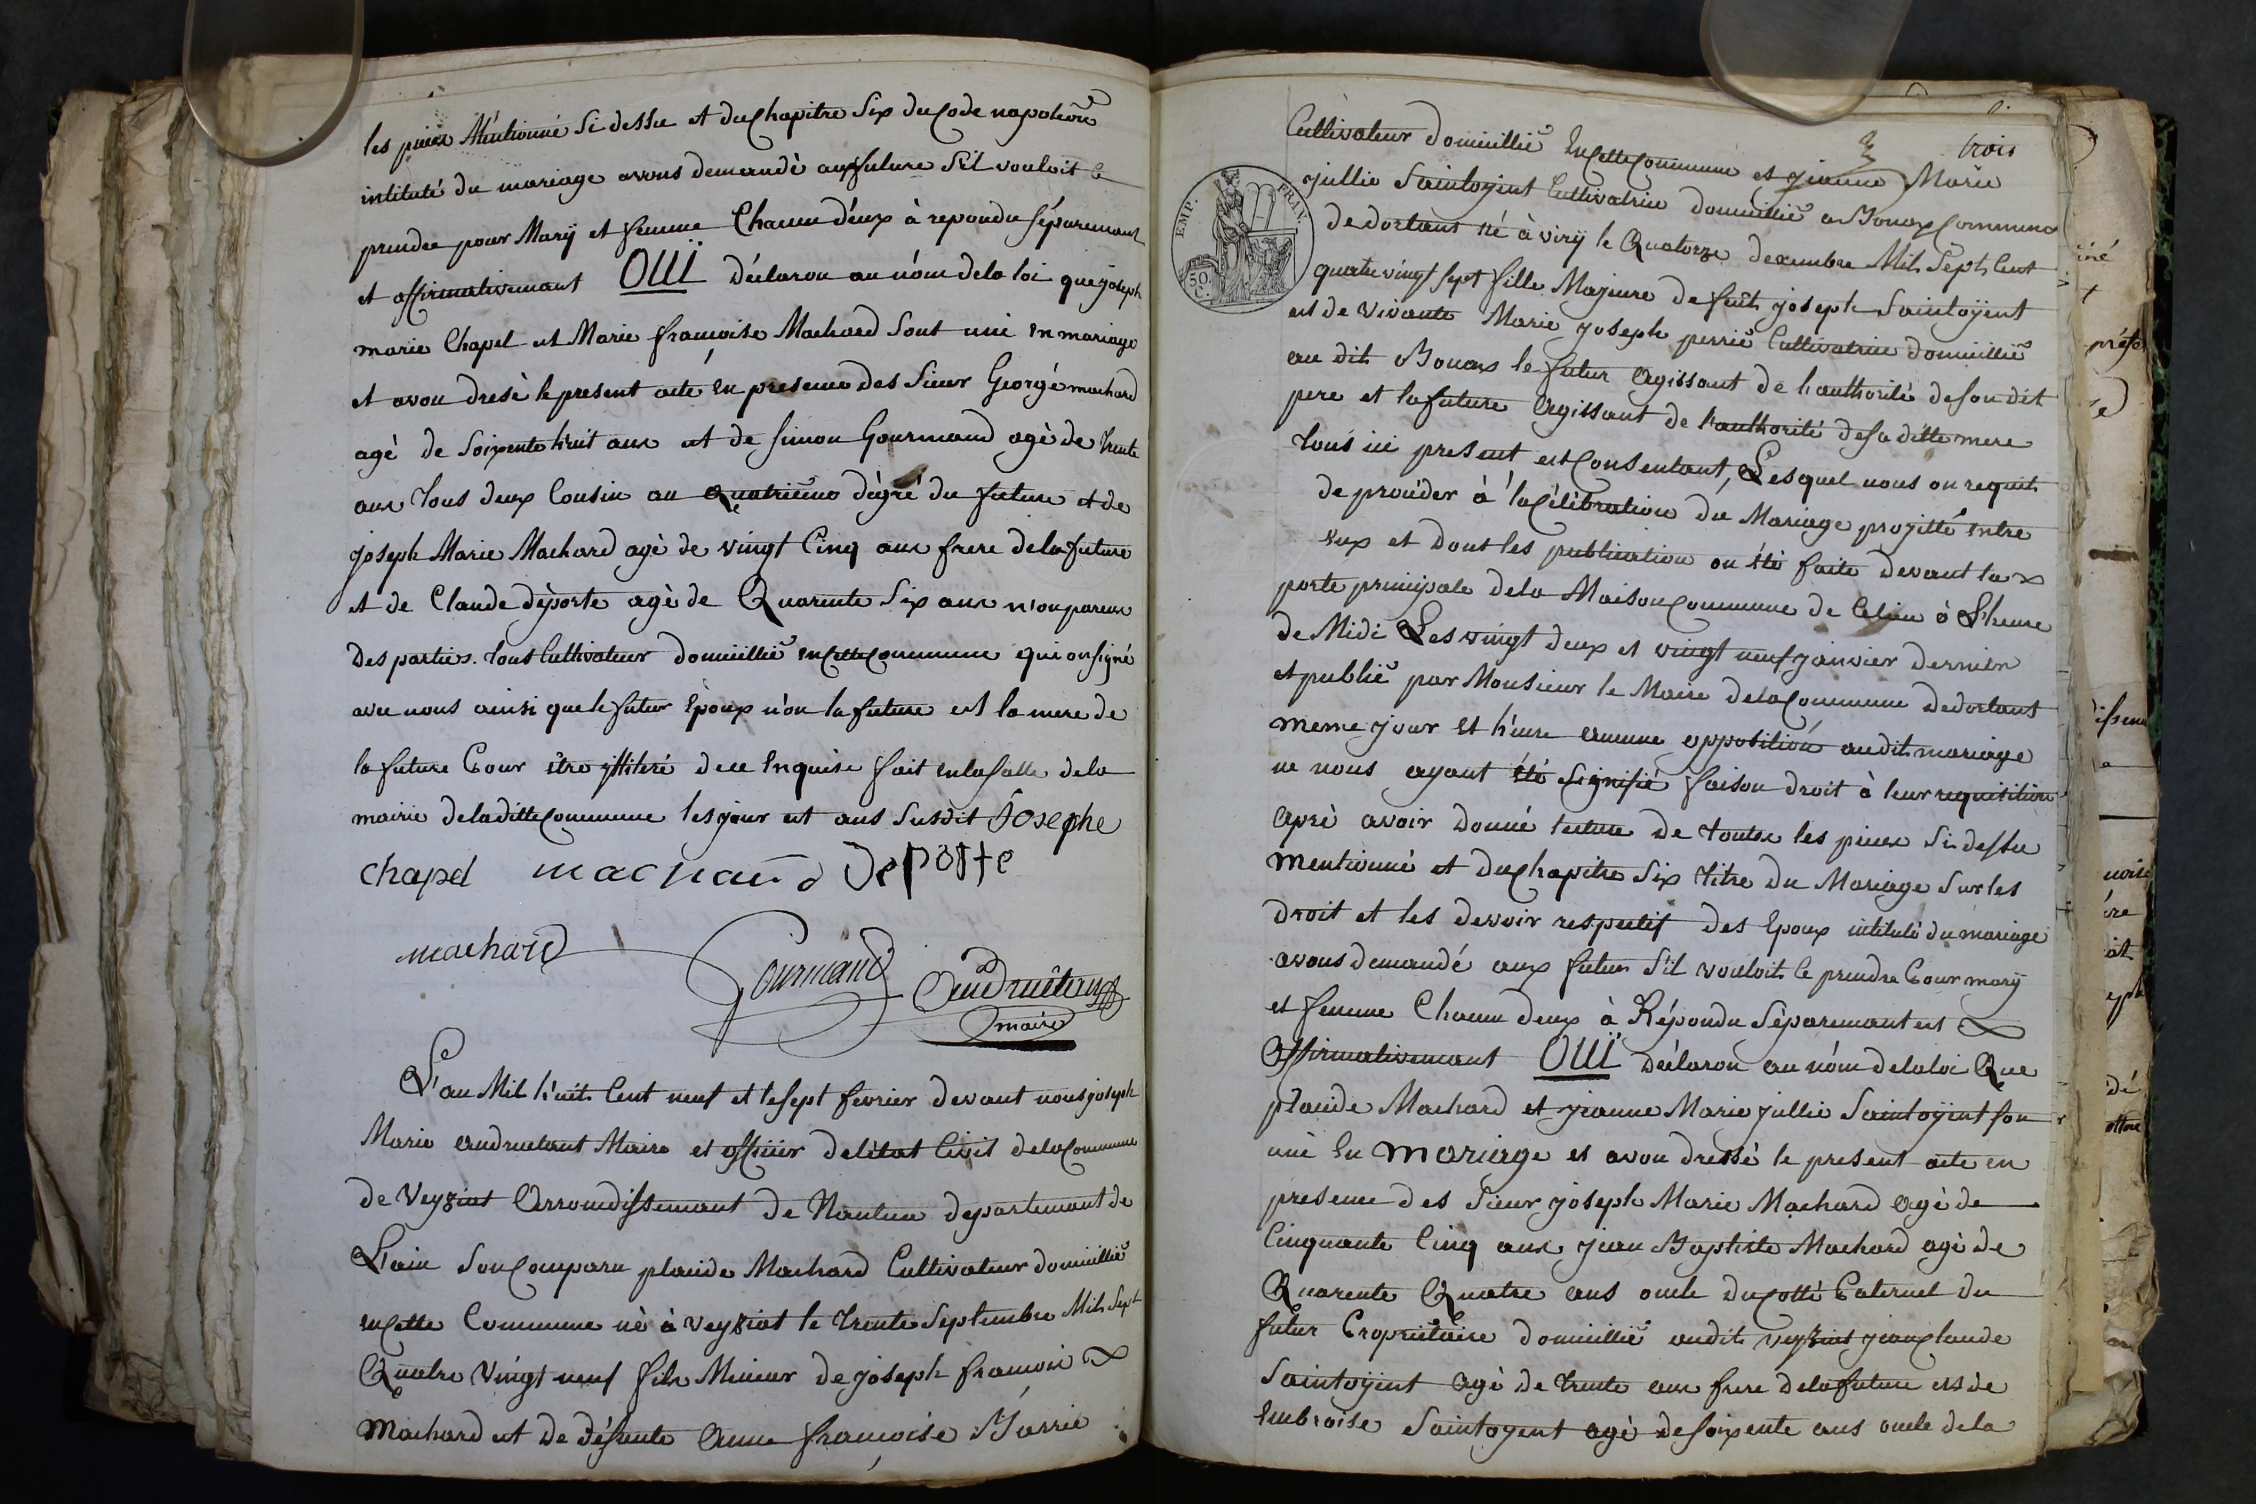 les pieces Mentionné Si dessu et du chapitre Six du Code napoleon
intitulé du mariage avons demendé aux future S'il vouloit ce
prendre pour Marÿ et femme Chacun d'eux à repondu séparemant
et affirmativemant OUI déclaron au nóm dela loi que joseph
marie Chapel et Marie françoise Machard Sont uni en mariage
et avon dresé le present acte en presence des Sieur Georgé machard
agé de Soixente huit ans et de Simon Gourmand agé de trente
ans tous deux Cousin au Quatrieme dégré du future et de
joseph Marie Machard agé de vingt Cinq ans frere dela future
et de Claude déporte agé de Quarente Six ans n'on parens
des parties. tous Cultivateur domicillié en cette commune qui on signé
avec nous ainsi que le futur Epoux n'on la future et la mere de
la future Pour être illiteré de ce enquise fait en la salle dela
mairie deladitte commune les jour et ans Susdit Josephe
chapel machard deporte
machard Gourmand Andruétan
maire
L'an Mil huit Cent neuf et le sept fevrier devant nous joseph
Marie andruetant Maire et officier de létat Civil dela Commune
de Veyziat Arrondissemant de Nantua departemant de
L'ain Son Comparu placide Machard Cultivateur domicillié
en cette Commune né à veyziat le trente Septembre Mil Sept
Quatre Vingt neuf fils Mineur de joseph francois
Machard et de défunte Anne françoise Barrie
trois
Cultivateur domicillié En cette Commune et jeanne Marie
jullie Saintoyent Cultivatrice domicillié a Bonax Commune
de dortant né à virÿ le Quatorze decembre Mil Sept Cent
EMP. FRAN.
50. C.
quatre vingt sept fille Majeure de feut joseph Saintoÿent
et de vivante Marie joseph perrié Cultivatrice domicillié
au dit Bonax le futur Agissant de l'authorité de son dit
pere et la future Agissant de l'authorité de sa ditte mere
tous ici present et Consentant, Lesquel nous on requit
de procéder à la Célébration du Mariage projetté entre
eux et dont les publication on été faite devant la
porte principale dela Maison Commune de Celieu à L'heure
de Midi Les vingt deux et vingt neuf janvier dernier
et publié par Monsieur le Maire dela Commune de dortant
meme jour et h'eure aucune opposition audit mariage
ne nous ayant été Signifié faison droit à leur requisition
Aprè avoir donné lecture de toutes les pieces Si dessu
Mentionné et du Chapitre Six titre du Mariage Sur les
droit et les devoir respectif des Epoux intitulé du mariage
avons demandé aux futur S'il vouloit ce prendre Pour marÿ
et femme Chacun deux à Répondu Séparemant et
Affirmativemant OUI déclaron au nóm dela loi Que
placide Machard et jeanne Marie jullie Saintoÿent son
uni En Mariage et avon dressé le present acte en
presence des Sieur joseph Marie Machard agé de
Cinquante Cinq ans jean Baptiste Machard agé de
Quarente Quatre ans oncle du cotté Paternel du
futur Propriétaire domicillié audit veyziat jean Claude
Saintoyent agé de trente ans frere dela future et de
embroise Saintoyent agé de soixente ans oncle dela